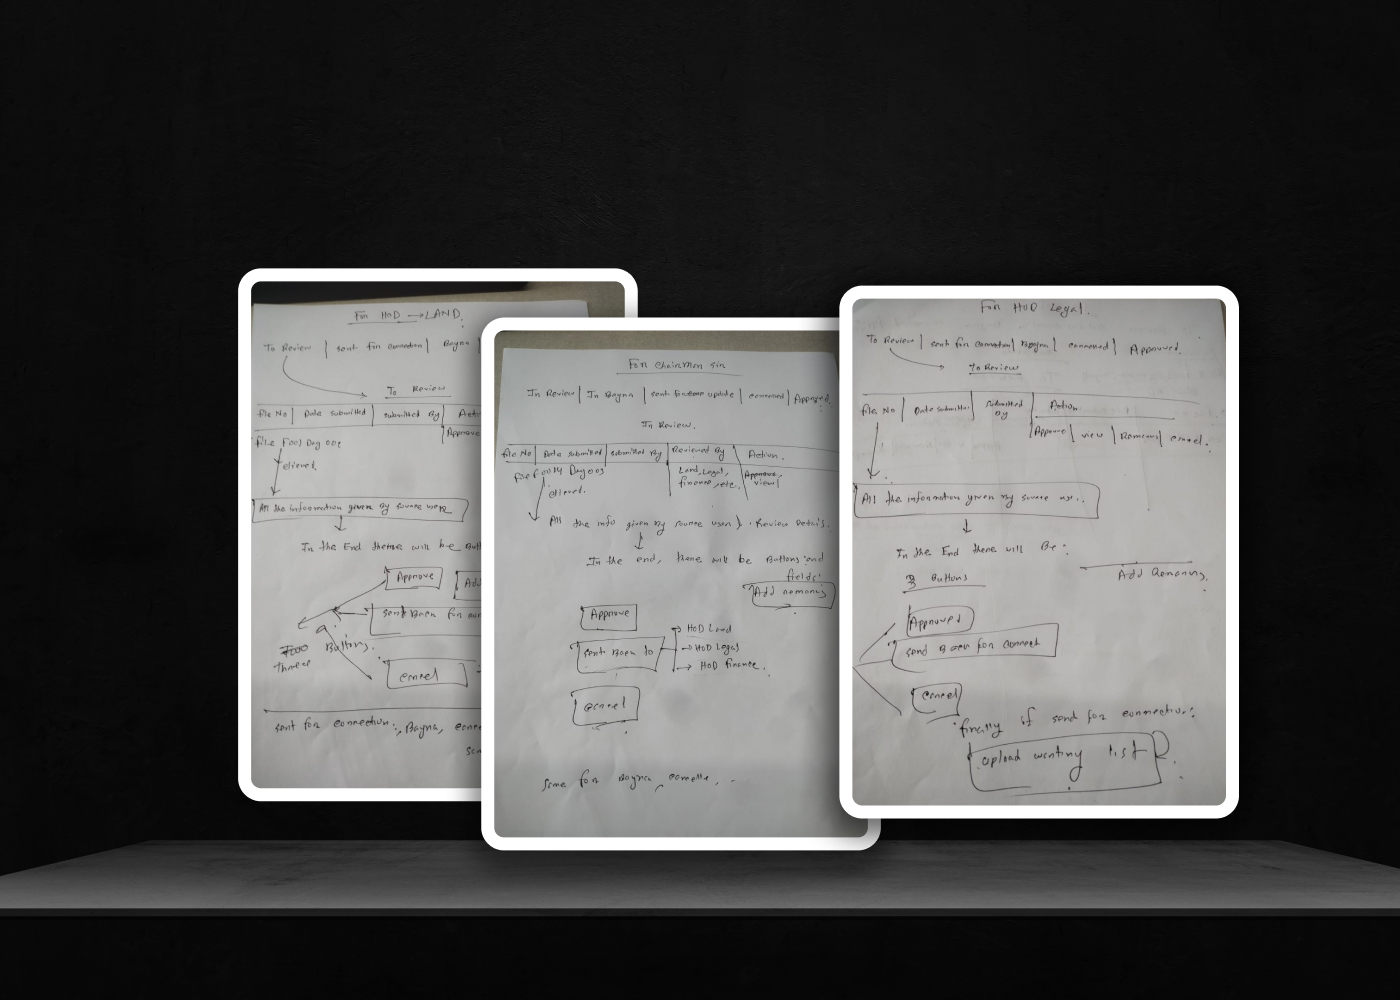 For HOD → LAND.
To Review | sent for correction | Bayna |
To Review
File No | Date submitted | submitted By | Actio
File F001 Dag 002 | Approve
All the information given By source user
In the End there will be Butt
Approve
Add
sent Back for cor
Three Buttons.
cancel
sent for correction, Bayna, cance
For Chairman Sir
In Review | In Bayna | sent for update | cancelled | Approved.
In Review.
File No | Date submitted | submitted By | Reviewed By | Action.
Dag 003 | Land, Legal, | Approve,
finance, etc. | view |
All the info given by source user } . Review Details.
In the end, there will be Buttons and
fields:
Add remarks
Approve
sent Back to
→ HOD Land
→ HOD Legal
→ HOD finance.
cancel
Same for Bayna,
For HOD Legal.
To Review | sent for correction | Bayna | cancelled | Approved.
To Review
File No | Date submitted | submitted By | Action
Approve | view | Remarks | cancel.
All the information given by source user..
In the End there will Be:
3 Buttons
Add Remarks.
Approved
send Back for correct
Cancel
finally if send for correction:
upload wanting list